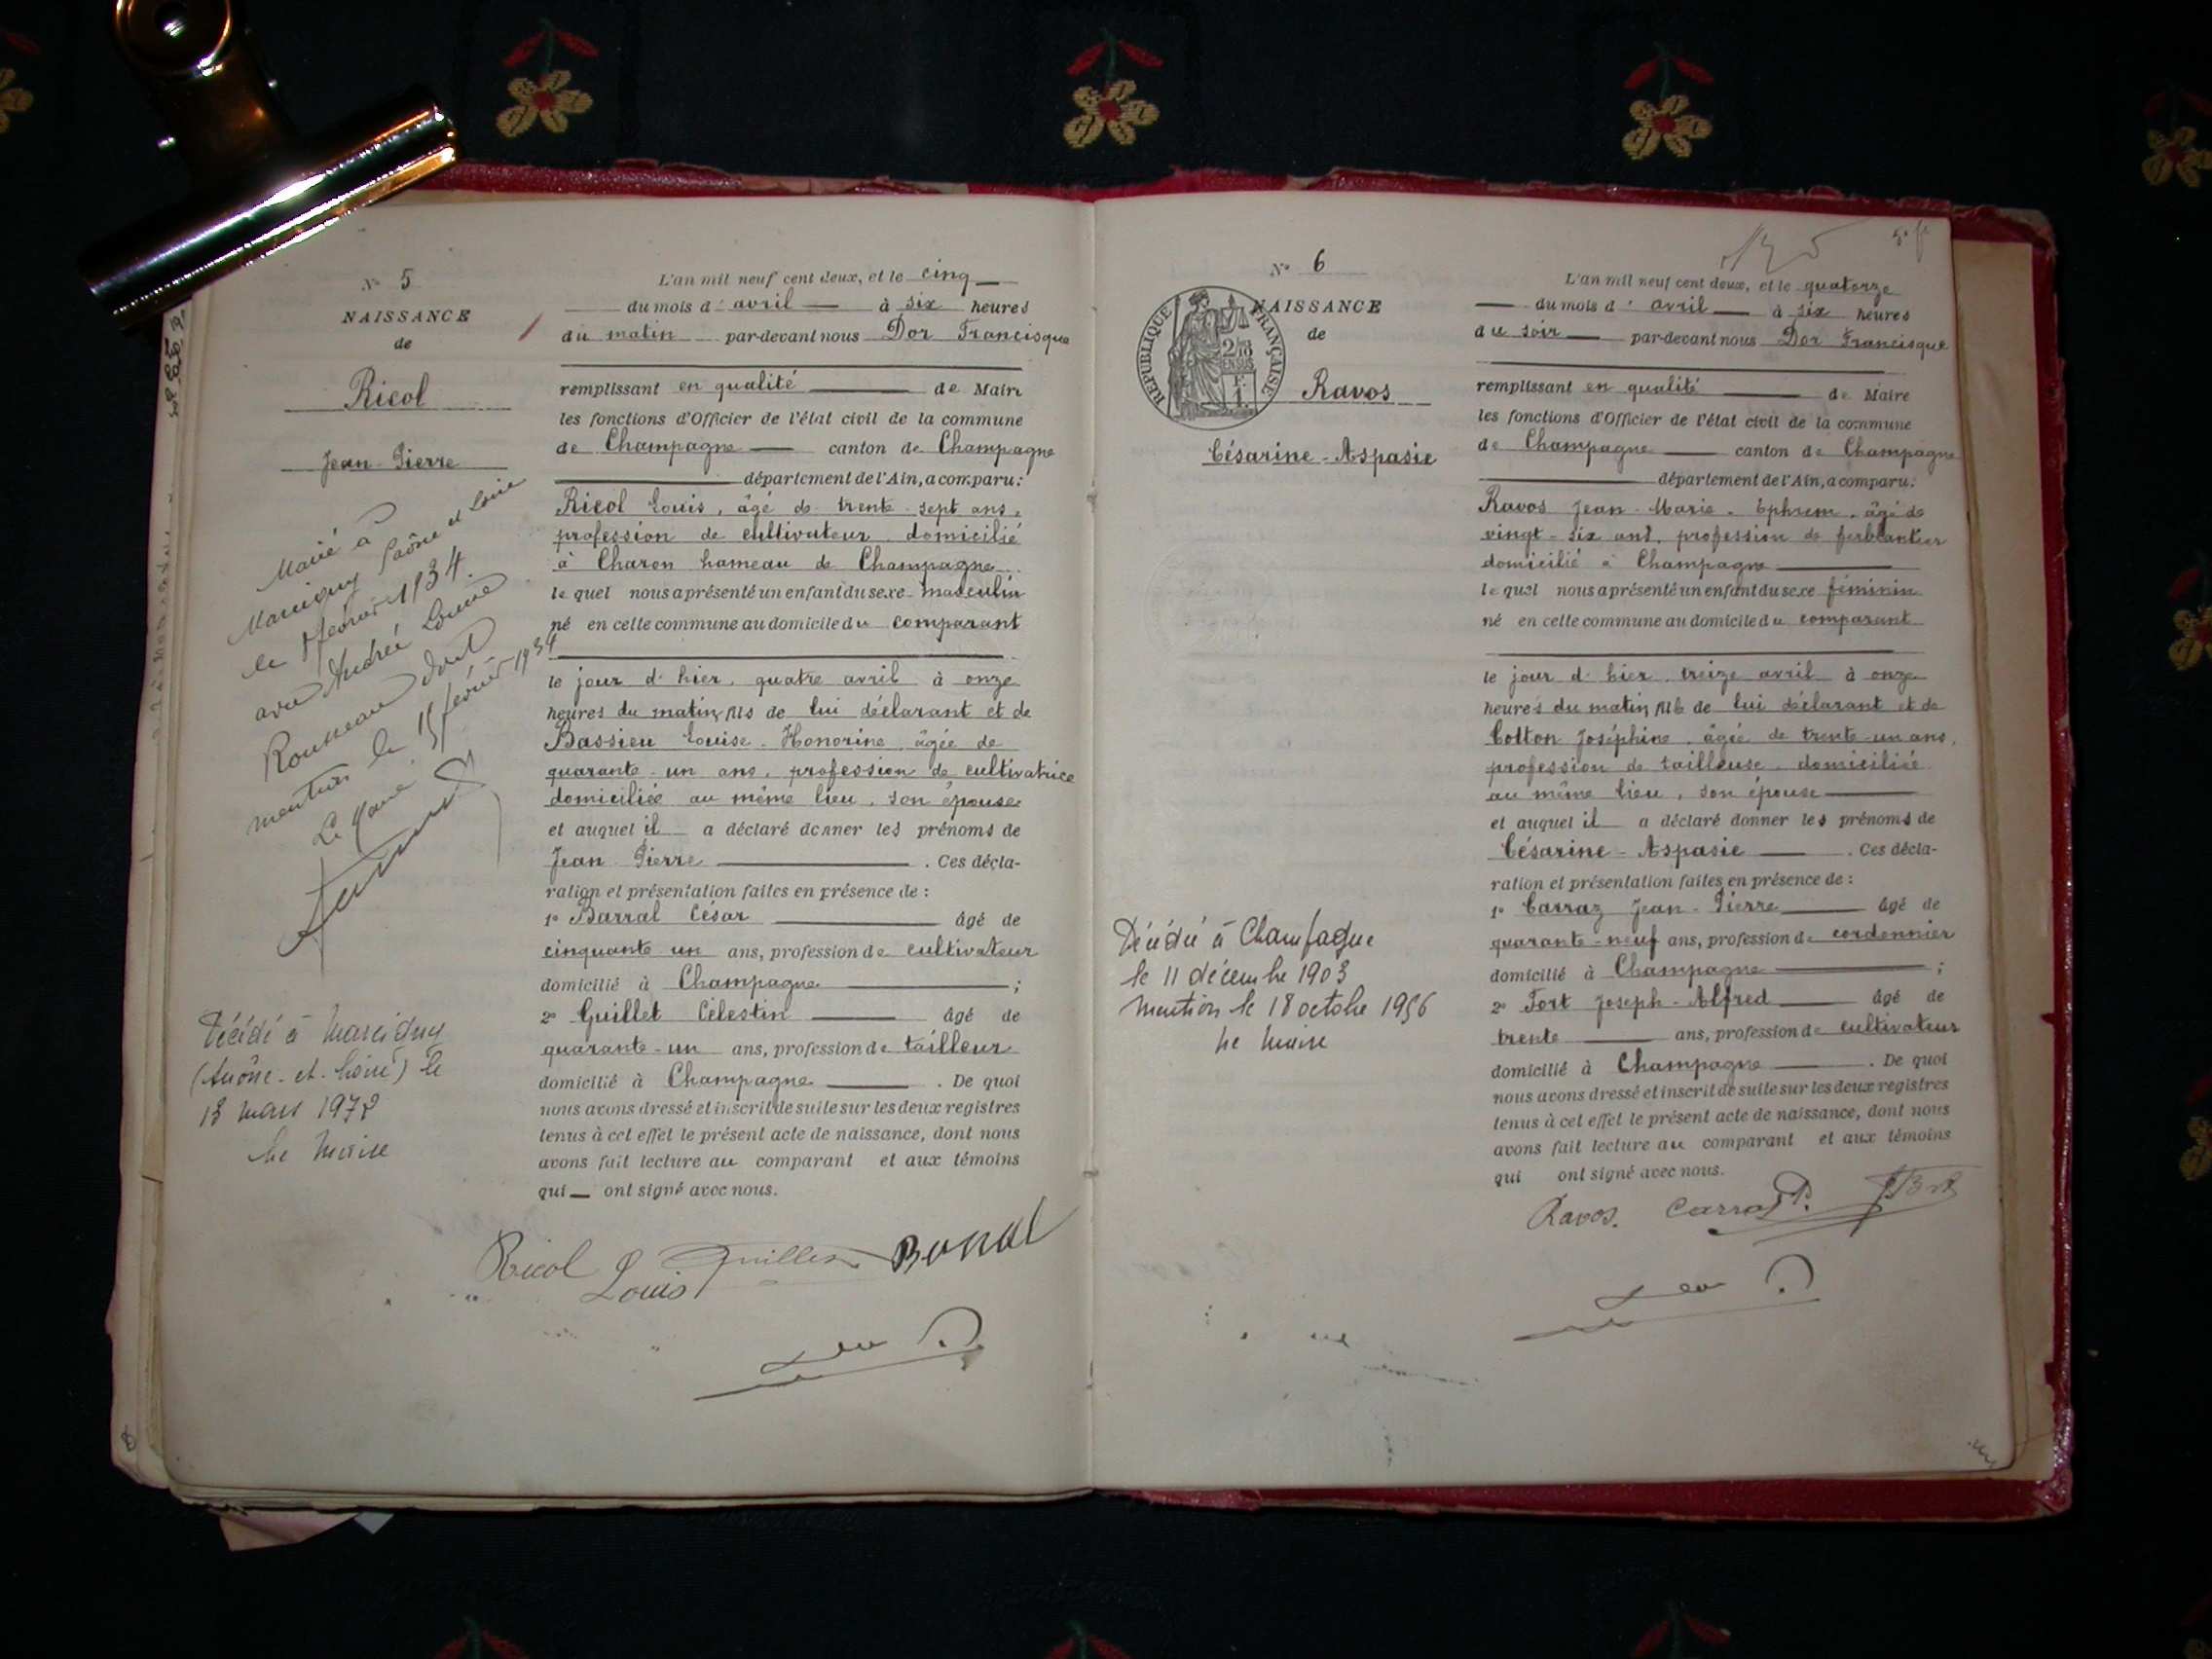 N° 5
NAISSANCE
de
Ricol
Jean-Pierre
Marié à
Marcigny Saône et Loire
le février 1934
avec Andrée Louise
Rousseau dont
mention le 15 février 1934
Le Maire
Décédé à Marcigny
(Saône-et-Loire) le
13 mars 1972
Le Maire
L'an mil neuf cent deux, et le cinq
du mois d' avril à six heures
du matin par-devant nous Dor Francisque
remplissant en qualité de Maire
les fonctions d'Officier de l'état civil de la commune
de Champagne canton de Champagne
département de l'Ain, a comparu:
Ricol Louis, âgé de trente-sept ans,
profession de cultivateur domicilié
à Charon hameau de Champagne
lequel nous a présenté un enfant du sexe masculin
né en cette commune au domicile du comparant
le jour d'hier, quatre avril à onze
heures du matin, fils de lui déclarant et de
Bassieu Louise-Honorine, âgée de
quarante-un ans, profession de cultivatrice
domiciliée au même lieu, son épouse
et auquel il a déclaré donner les prénoms de
Jean Pierre . Ces décla-
ration et présentation faites en présence de :
1° Barral César âgé de
cinquante un ans, profession de cultivateur
domicilié à Champagne ;
2° Guillet Célestin âgé de
quarante-un ans, profession de tailleur
domicilié à Champagne . De quoi
nous avons dressé et inscrit de suite sur les deux registres
tenus à cet effet le présent acte de naissance, dont nous
avons fait lecture au comparant et aux témoins
qui ont signé avec nous.
Ricol Louis Guillet Barral
N° 6
RÉPUBLIQUE FRANÇAISE
NAISSANCE
de
Ravos
Césarine-Aspasie
Décédée à Champagne
le 11 décembre 1903
Mention le 18 octobre 1956
Le Maire
L'an mil neuf cent deux, et le quatorze
du mois d' avril à six heures
du soir par-devant nous Dor Francisque
remplissant en qualité de Maire
les fonctions d'Officier de l'état civil de la commune
de Champagne canton de Champagne
département de l'Ain, a comparu:
Ravos Jean-Marie-Ephrem, âgé de
vingt-six ans, profession de ferblantier
domicilié à Champagne
lequel nous a présenté un enfant du sexe féminin
né en cette commune au domicile du comparant
le jour d'hier, treize avril à onze
heures du matin, fille de lui déclarant et de
Cotton Joséphine, âgée de trente-un ans,
profession de tailleuse, domiciliée
au même lieu, son épouse
et auquel il a déclaré donner les prénoms de
Césarine-Aspasie . Ces décla-
ration et présentation faites en présence de :
1° Carraz Jean-Pierre âgé de
quarante-neuf ans, profession de cordonnier
domicilié à Champagne ;
2° Fort Joseph-Alfred âgé de
trente ans, profession de cultivateur
domicilié à Champagne . De quoi
nous avons dressé et inscrit de suite sur les deux registres
tenus à cet effet le présent acte de naissance, dont nous
avons fait lecture au comparant et aux témoins
qui ont signé avec nous.
Ravos. Carraz